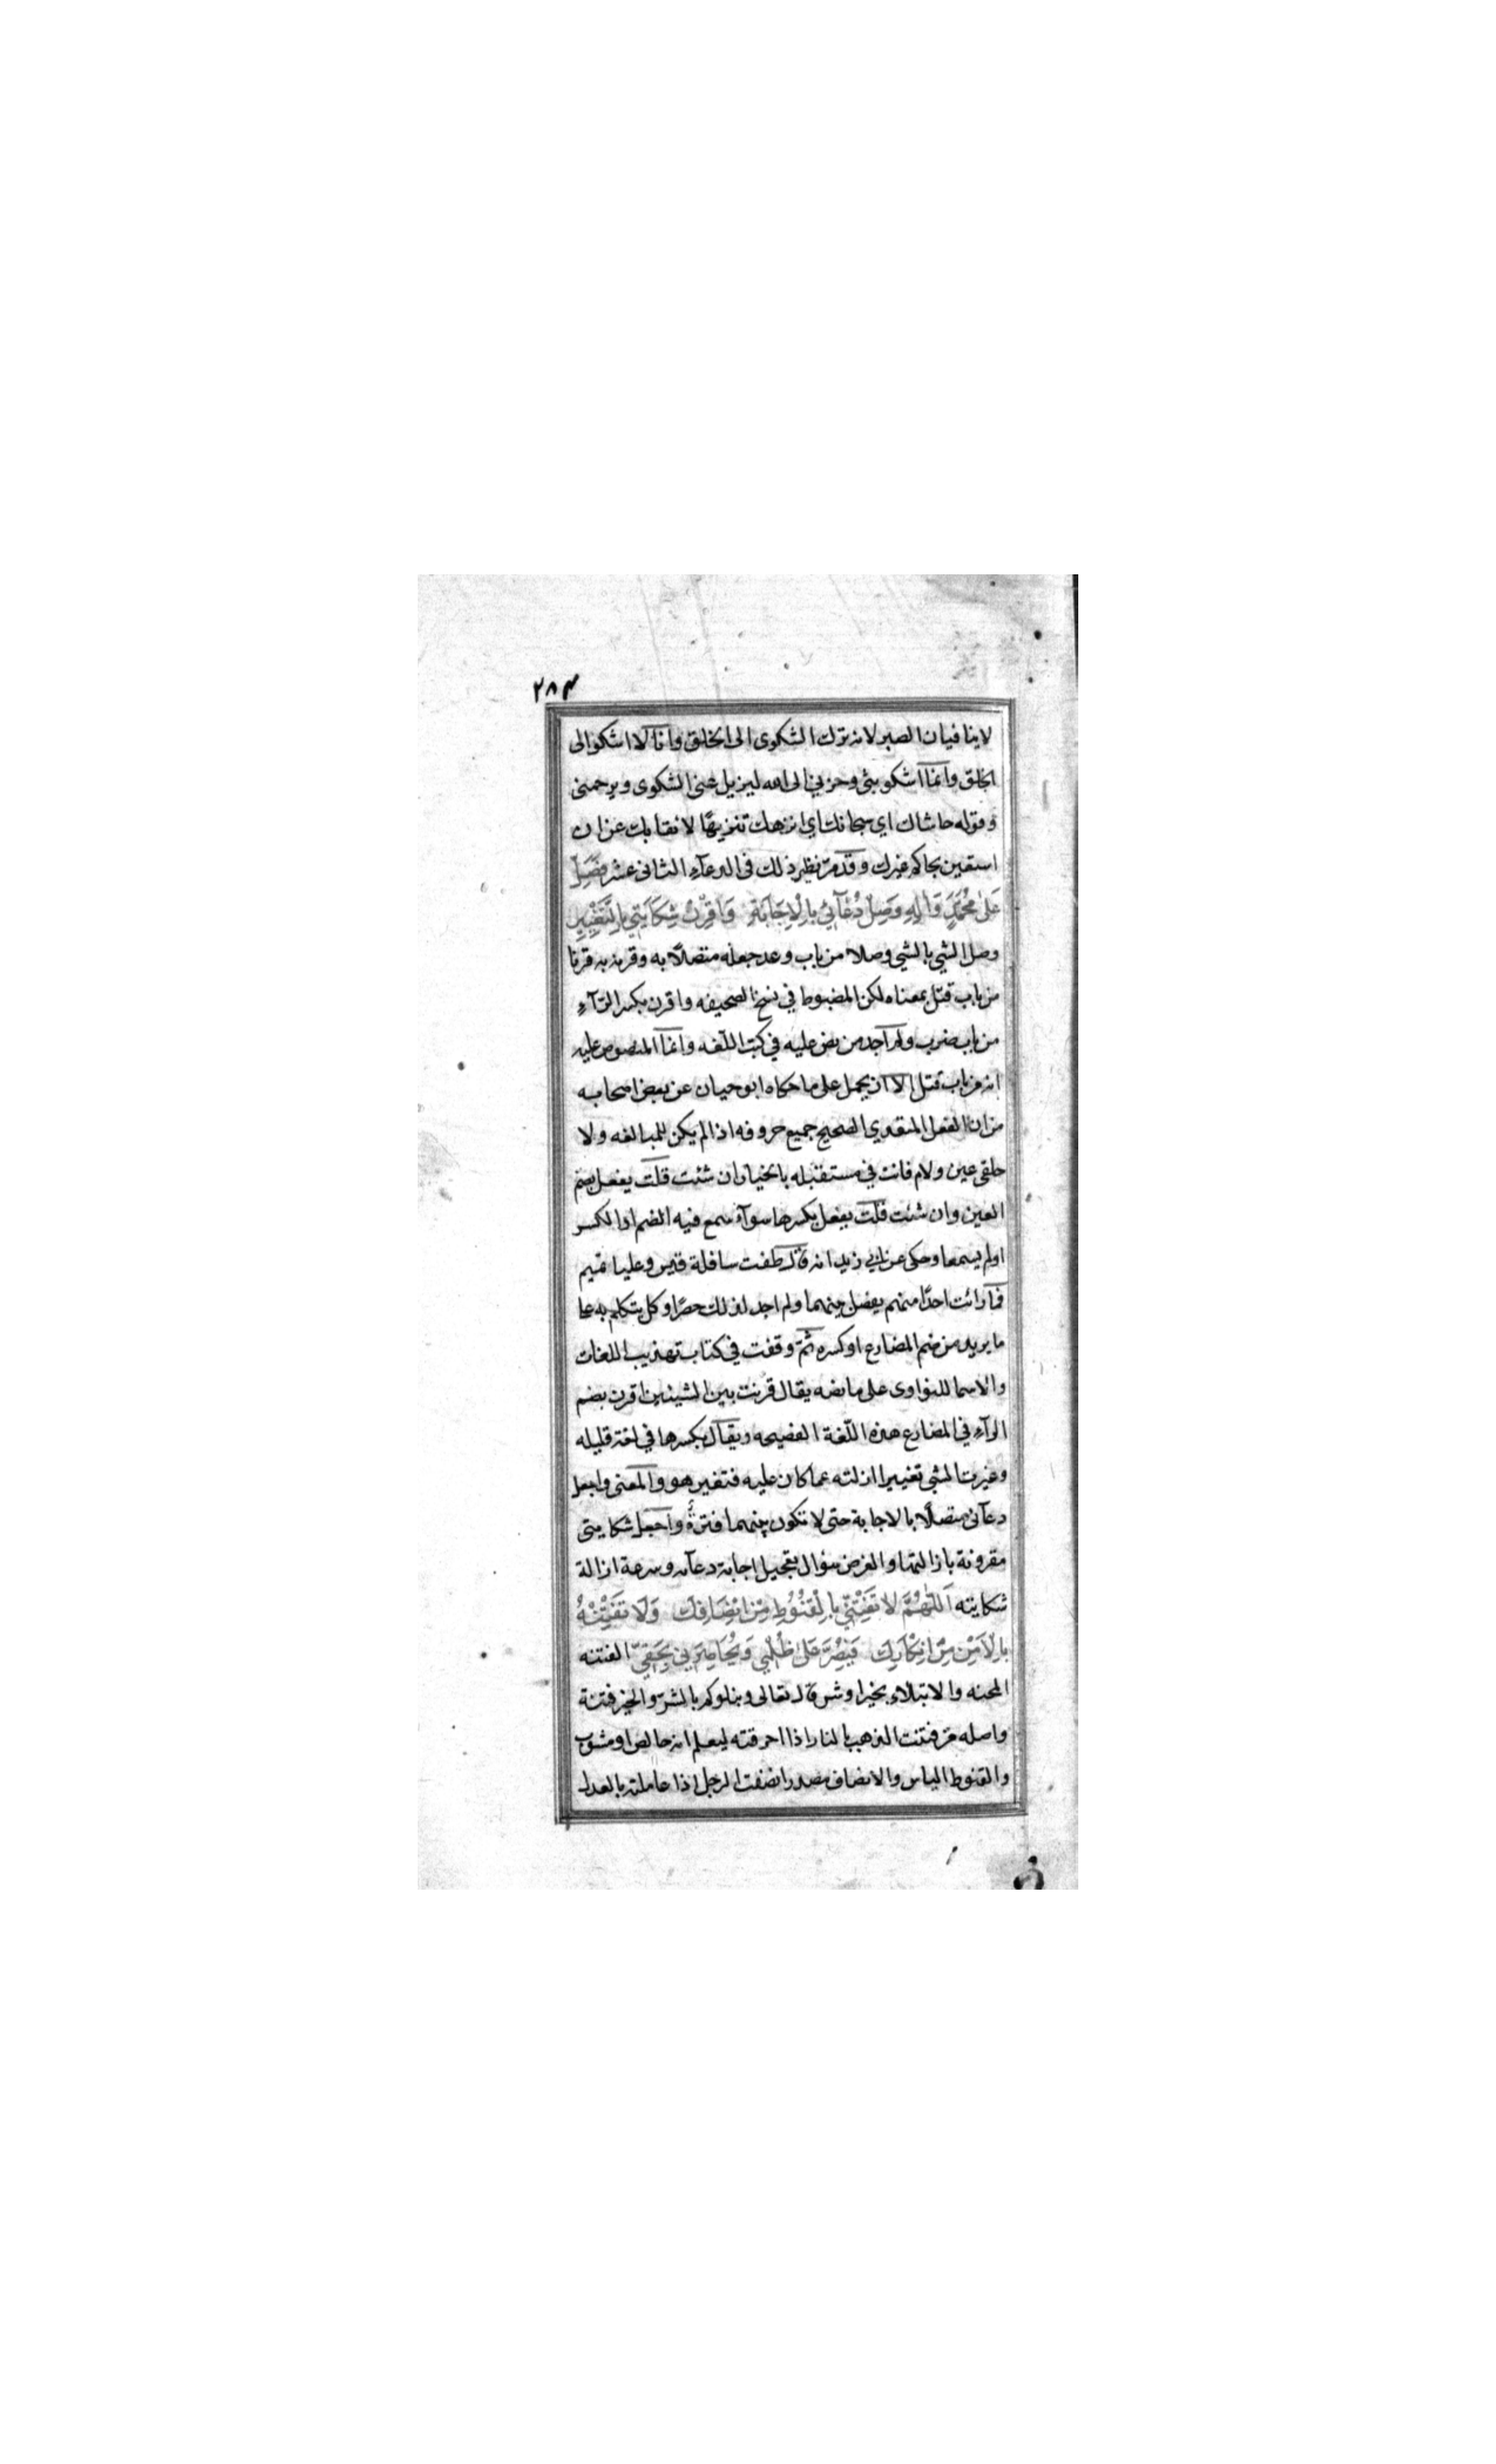 ٢٨٣
لاينافيان الصبر لانه ترك الشكوى الى الخلق وانا لا اشكو الى
الخلق وانما اشكو بثي وحزني الى الله ليزيل عني الشكوى ويرحمني
وقوله حاشاك اي سبحانك اي انزهك تنزيهًا لائقا بك عن ان
استعين بحاكم غيرك وقد مر نظير ذلك في الدعآء الثاني عشر فَصَلِّ
عَلى مُحَمَّدٍ وَالِهِ وَصِلْ دُعَآئِي بِالْاِجَابَةِ وَاقْرِنْ شِكَايَتِي بِالتَّغْيِيرِ
وصل الشي بالشي وصلا من باب وعد جعله متصلًا به وقرنه به قرنا
من باب قتل بمعناه لكن المضبوط في نسخ الصحيفه واقرن بكسر الرّآءِ
من باب ضرب ولم اجد من نص عليه في كتب اللّغه وانما المنصوص عليه
انه من باب قتل الا ان يحمل على ما حكاه ابو حيان عن بعض اصحابه
من ان الفعل المتعدي الصحيح جميع حروفه اذا لم يكن للمبالغه ولا
حلقى عين ولام فانت في مستقبله بالخيار ان شئت قلت يفعل بضم
العين وان شئت قلت يفعل بكسرها سوآء سمع فيه الضم او الكسر
اولم يسمعا وحكى عن ابي زيد انه قال طفت سافلة قيس وعليا تميم
فما رائت احدًا منهم يفصل بينهما ولم اجد لذلك حصرًا وكل يتكلم به على
ما يريد من ضم المضارع او كسره ثمّ وقفت في كتاب تهذيب اللغات
والاسما للنواوى على ما نصه يقال قرنت بين الشيئين اقرن بضم
الرآءِ في المضارع هذه اللّغة الفصيحه ويقال بكسرها في لغة قليله
وغيرت الشي تغييرا ازلته عما كان عليه فتغير هو والمعنى واجعل
دعآئى متصلًا بالاجابة حتى لا تكون بينهما فترةٌ واجعل شكايتى
مقرونة بازالتها والغرض سؤال تعجيل اجابة دعآئه وسرعة ازالة
شكايته اَللّهُمَّ لا تَفْتِنِّي بِالْقُنُوُطِ مِنْ اِنْصَافِكَ وَلَا تَفْتِنْهُ
بِالْاَمْنِ مِنْ اِنْكَارِكَ فَيُصِرَّ عَلى ظُلْمِي وَيُحَاصِرَنِي بِحَقِّي الفتنه
المحنه والابتلاء بخير او شر قال تعالى ونبلوكم بالشرّ والخير فتنة
واصله من فتنت الذهب بالنار اذا احرقته ليعلم انه خالص او مشوب
والقنوط الياس والانصاف مصدر انصفت الرجل اذا عاملته بالعدل